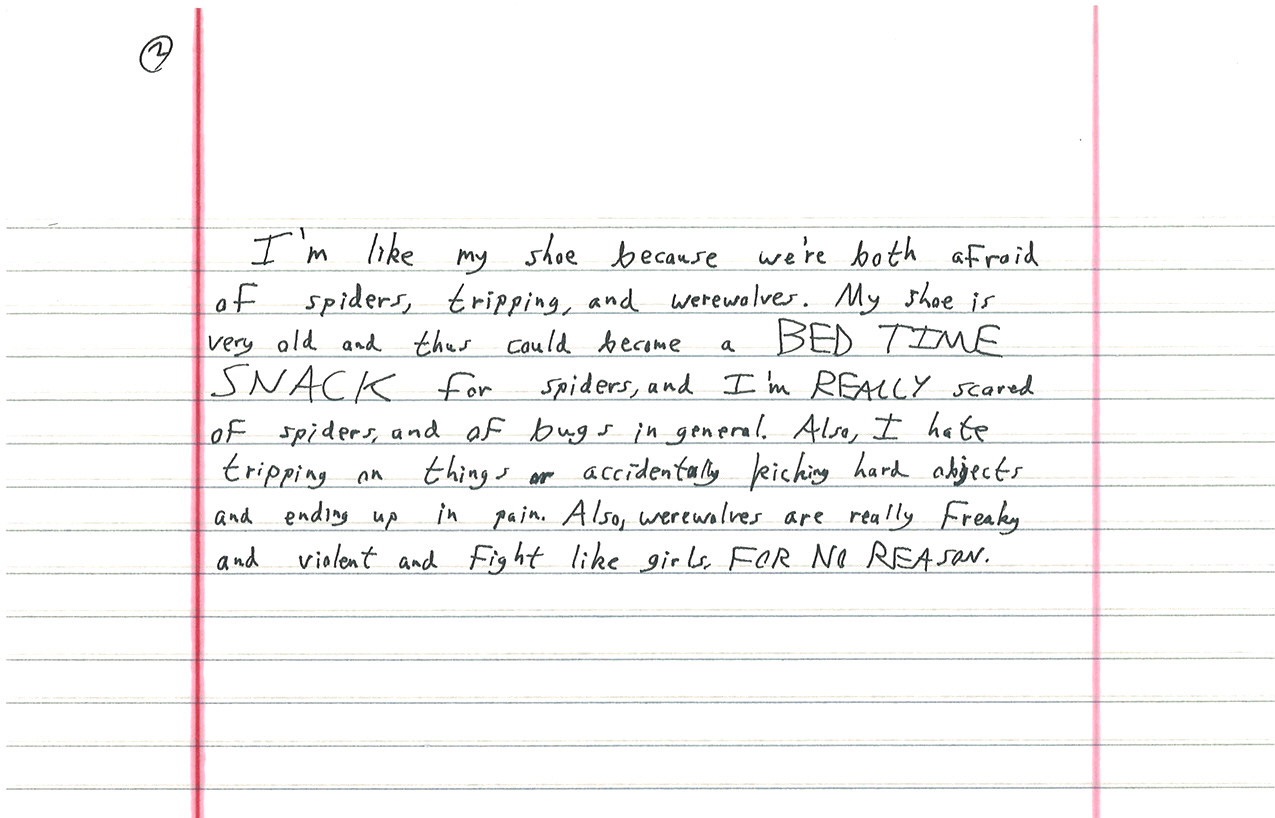 2
I'm like my shoe because we're both afraid
of spiders, tripping, and werewolves. My shoe is
very old and thus could become a BED TIME
SNACK for spiders, and I'm REALLY scared
of spiders, and of bugs in general. Also, I hate
tripping on things or accidentally kicking hard objects
and ending up in pain. Also, werewolves are really freaky
and violent and fight like girls, FOR NO REASON.